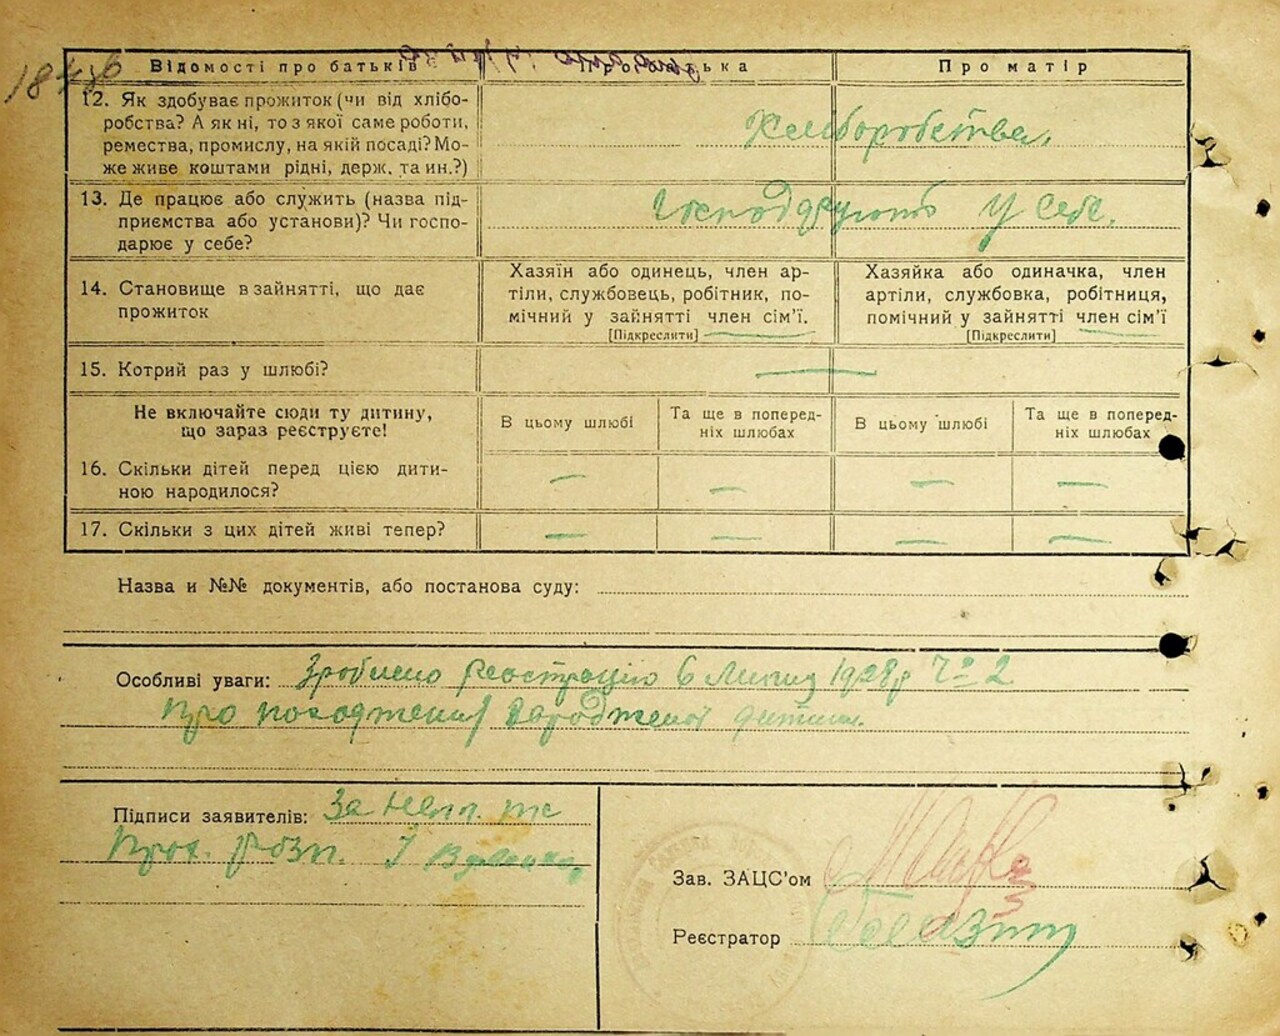 Відомості про батьків
Про батька
Про матір
12. Як здобуває прожиток (чи від хлібо-
робства? А як ні, то з якої саме роботи,
ремества, промислу, на якій посаді? Мо-
же живе коштами рідні, держ. та ин.?)
Хліборобства.
13. Де працює або служить (назва під-
приємства або установи)? Чи госпо-
дарює у себе?
Господарують у себе.
14. Становище в зайнятті, що дає
прожиток
Хазяїн або одинець, член ар-
тіли, службовець, робітник, по-
мічний у зайнятті член сім'ї.
[Підкреслити]
Хазяйка або одиначка, член
артіли, службовка, робітниця,
помічний у зайнятті член сім'ї
[Підкреслити]
15. Котрий раз у шлюбі?
Не включайте сюди ту дитину,
що зараз реєструєте!
В цьому шлюбі
Та ще в поперед-
ніх шлюбах
В цьому шлюбі
Та ще в поперед-
ніх шлюбах
16. Скільки дітей перед цією дити-
ною народилося?
— — — —
17. Скільки з цих дітей живі тепер?
— — — —
Назва и №№ документів, або постанова суду:
Особливі уваги: Зроблено реєстрацію 6 Липня 1928р Ч= 2
про походження народженої дитини.
Підписи заявителів: За непп. та
Прох. розп. І
Зав. ЗАЦС'ом
Реєстратор